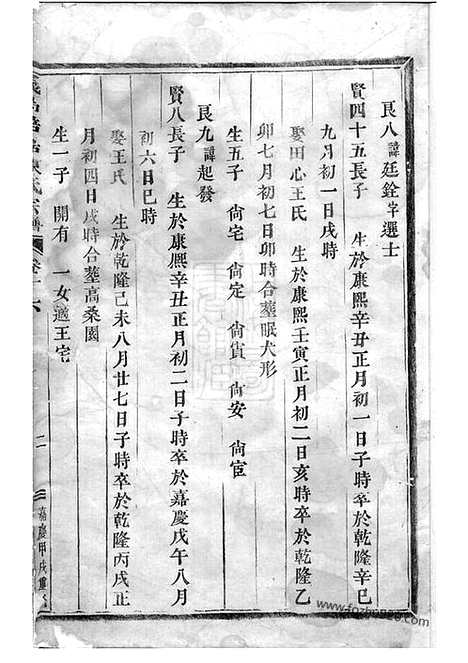 良八 諱廷銓字選士
賢四十五長子 生於康熙辛丑正月初一日子時卒於乾隆辛巳
九月初一日戌時
娶田心王氏 生於康熙壬寅正月初二日亥時卒於乾隆乙
卯七月初七日卯時合塟眠犬形
生五子 尙宅 尙定 尙賞 尙安 尙宦
良九 諱起發
賢八長子 生於康熙辛丑正月初二日子時卒於嘉慶戊午八月
初六日巳時
娶王氏 生於乾隆己未八月廿七日子時卒於乾隆丙戌正
月初四日戌時合塟高桑園
生一子 開有 一女適王宅
氏宗譜 卷十六 二 嘉慶甲戌重
www.fozhu920.com